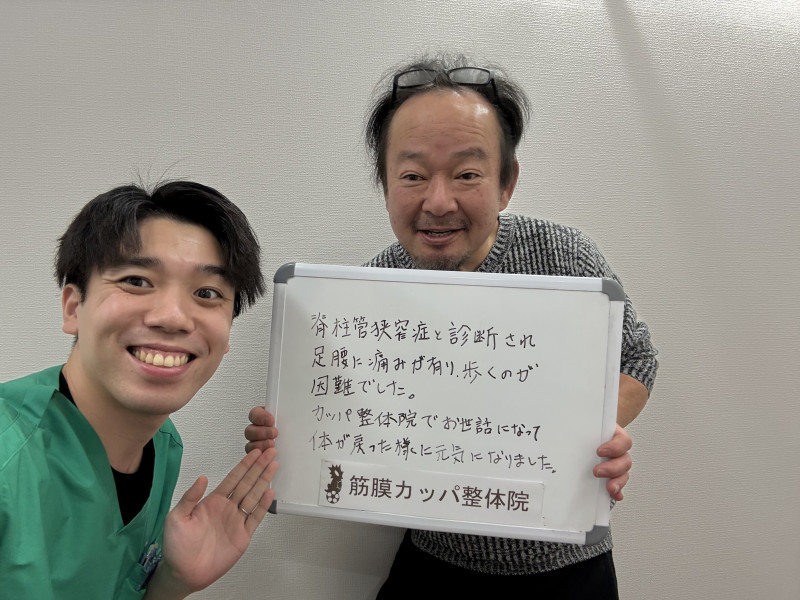 脊柱管狭窄症と診断され
足腰に痛みが有り、歩くのが
困難でした。
カッパ整体院でお世話になって
体が戻った様に元気になりました。
筋膜カッパ整体院